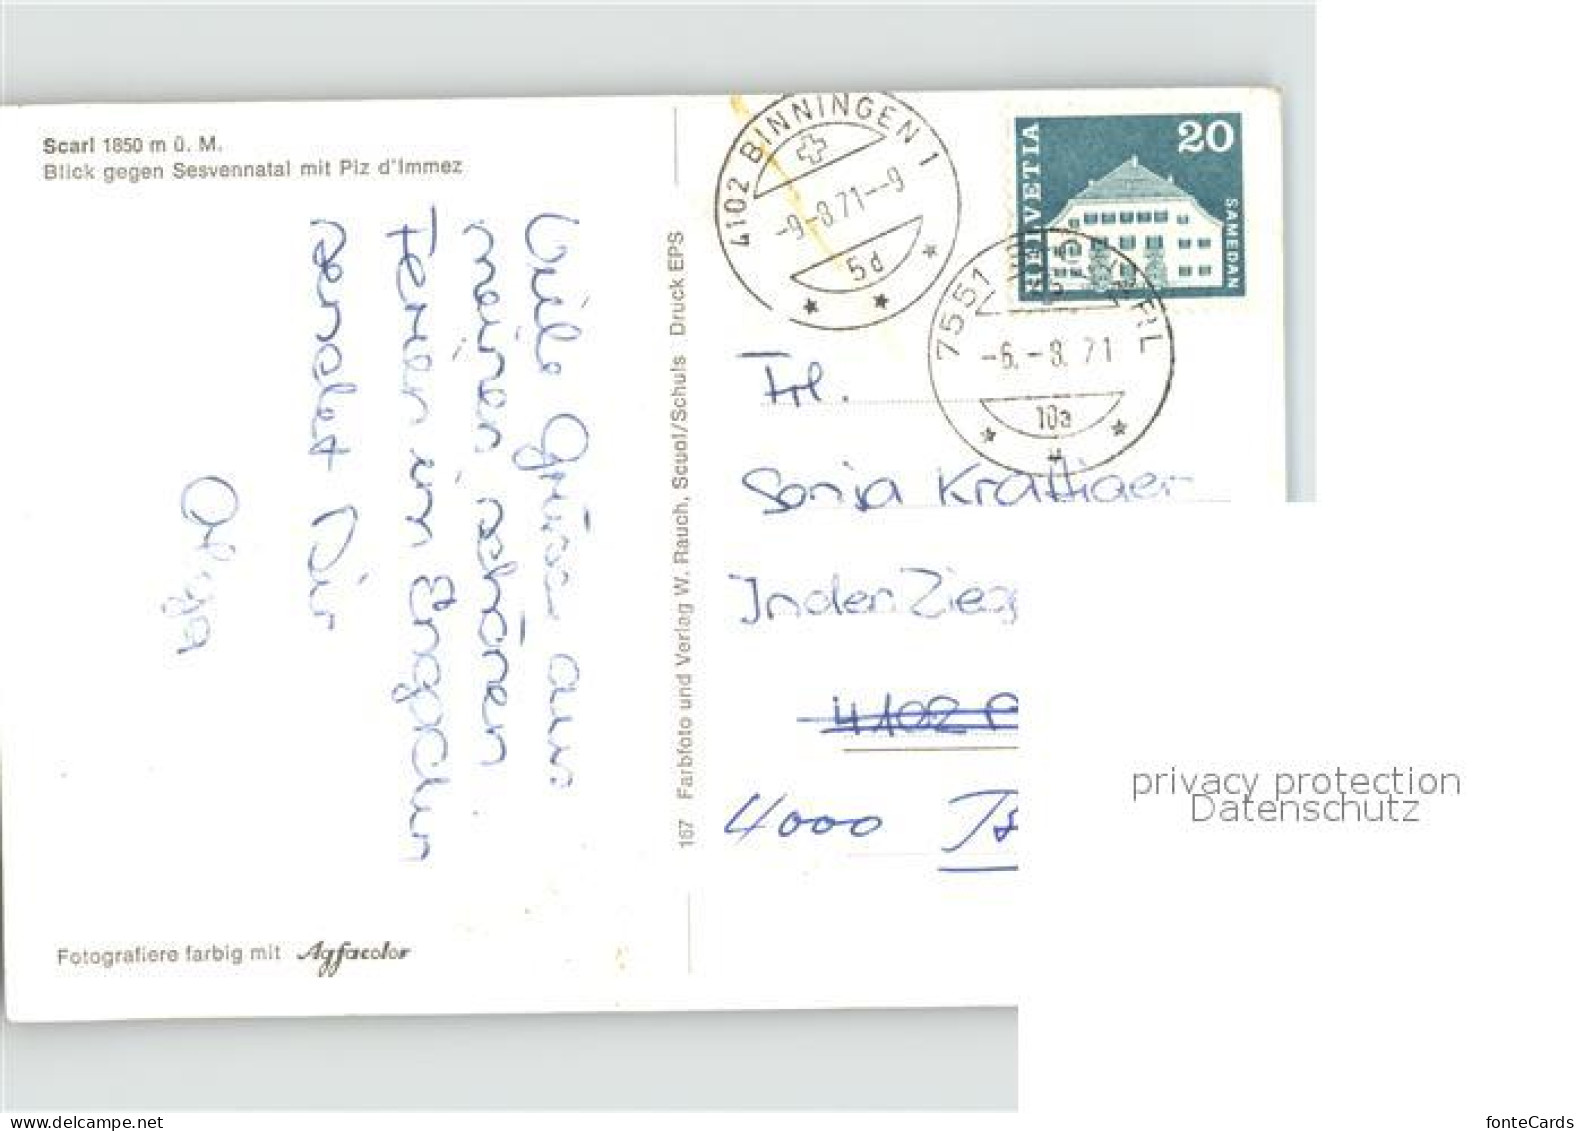 Scarl 1850 m ü. M.
Blick gegen Sesvennatal mit Piz d'Immez
Viele Grüsse aus
meinen schönen
Ferien im Engadin
sendet Dir
Olga
Fotografiere farbig mit Agfacolor
167 Farbfoto und Verlag W. Rauch, Scuol/Schuls Druck EPS
4102 BINNINGEN 1
-9.-8.71--9
5d
HELVETIA
20
SAMEDAN
7551
-6.-8.71
10a
Frl.
Sonja Krattiger
In den Zieg
4102
4000
privacy protection
Datenschutz
fonteCards